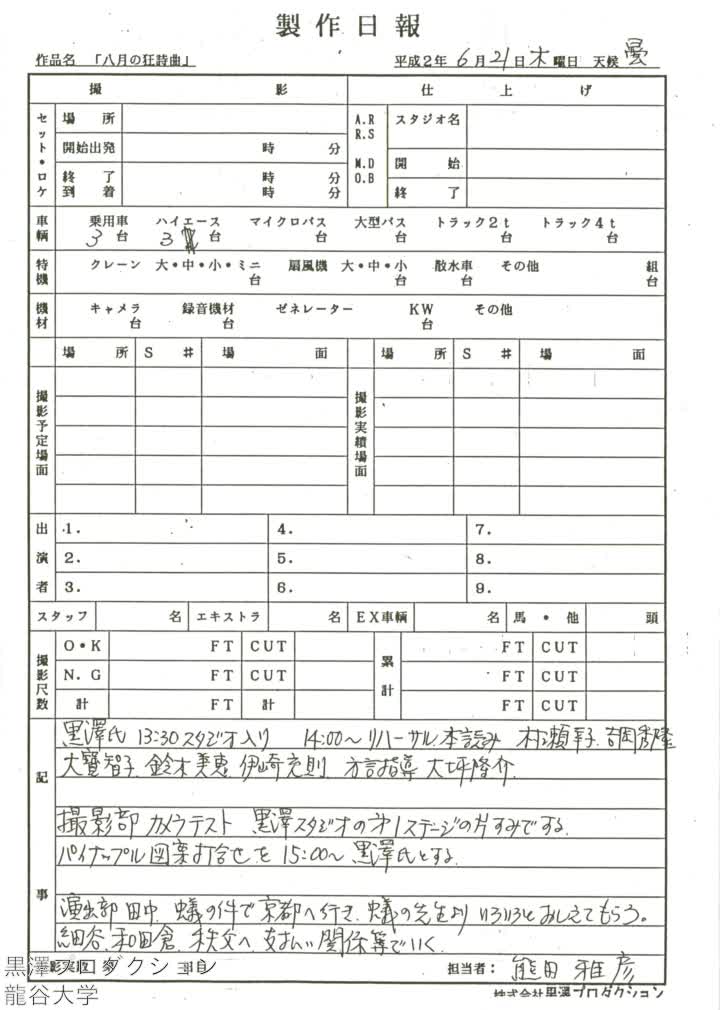 製作日報
作品名 「八月の狂詩曲」 平成2年 6月21日 木曜日 天候 曇
撮影 仕上げ
セット・ロケ 場所 A.R R.S M.D O.B スタジオ名
開始出発 時 分 開始
終了到着 時 分 時 分 終了
車輌 乗用車 ハイエース マイクロバス 大型バス トラック2t トラック4t
3台 3台 台 台 台 台
特機 クレーン 大・中・小・ミニ 扇風機 大・中・小 散水車 その他 組
台 台 台 台
機材 キャメラ 録音機材 ゼネレーター KW その他
台 台 台
場所 S# 場面 場所 S# 場面
撮影予定場面 撮影実績場面
出演者 1. 4. 7.
2. 5. 8.
3. 6. 9.
スタッフ 名 エキストラ 名 EX車輌 名 馬・他 頭
撮影尺数 O・K FT CUT 累計 FT CUT
N.G FT CUT FT CUT
計 FT 計 FT CUT
記事
黒澤氏 13:30スタジオ入り 14:00〜リハーサル.本読み 村瀬幸子.吉岡秀隆
大寶智子.鈴木美恵.伊崎充則.方言指導 大坪隆介.
撮影部 カメラテスト 黒澤スタジオの第1ステージの片すみでする.
パイナップル図案打合せを 15:00〜黒澤氏とする.
演出部 田中. 蟻の件で京都へ行き. 蟻の先生より いろいろとおしえてもらう。
細谷.和田倉. 秩父へ. 支払い関係等でいく.
担当者: 熊田 雅彦
株式会社黒澤プロダクション
黒澤プロダクション
龍谷大学